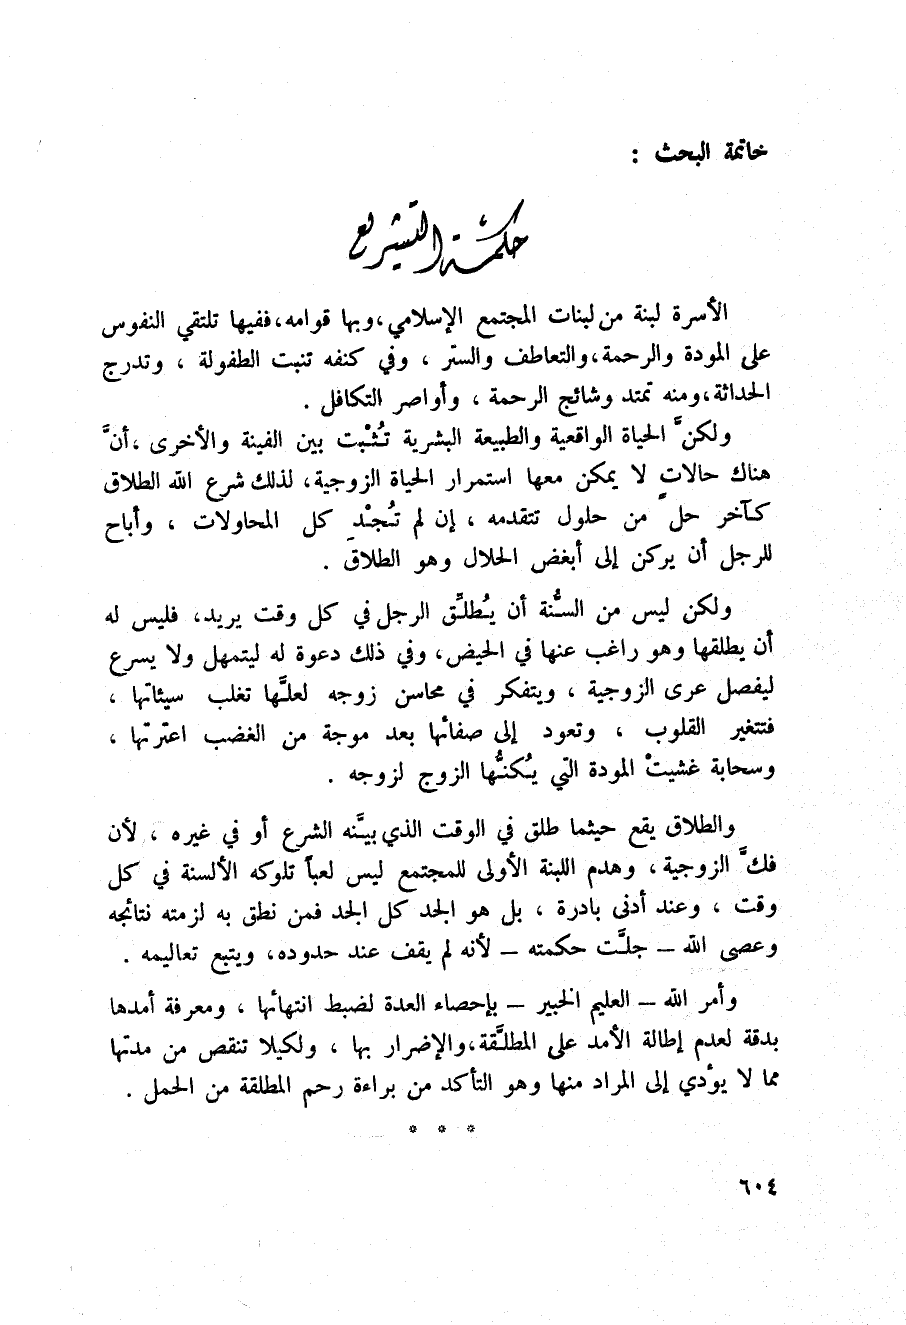 خاتمة البحث :
حكمة التشريع
الأسرة لبنة من لبنات المجتمع الإسلامي ، وبها قوامه ، ففيها تلتقي النفوس
على المودة والرحمة ، والتعاطف والستر ، وفي كنفه تنبت الطفولة ، وتدرج
الحداثة ، ومنه تمتد وشائج الرحمة ، وأواصر التكافل .
ولكنَّ الحياة الواقعية والطبيعة البشرية تُثْبت بين الفينة والأخرى ، أنَّ
هناك حالاتٍ لا يمكن معها استمرار الحياة الزوجية ، لذلك شرع الله الطلاق
كآخر حل من حلول تتقدمه ، إن لم تُجْدِ كل المحاولات ، وأباح
للرجل أن يركن إلى أبغض الحلال وهو الطلاق .
ولكن ليس من السُّنة أن يُطلِّق الرجل في كل وقت يريد ، فليس له
أن يطلقها وهو راغب عنها في الحيض ، وفي ذلك دعوة له ليتمهل ولا يسرع
ليفصل عرى الزوجية ، ويتفكر في محاسن زوجه لعلَّها تغلب سيئاتها ،
فتتغير القلوب ، وتعود إلى صفائها بعد موجة من الغضب اعترتها ،
وسحابة غشيتْ المودة التي يُكنُّها الزوج لزوجه .
والطلاق يقع حيثما طلق في الوقت الذي بيَّنه الشرع أو في غيره ، لأن
فكَّ الزوجية ، وهدم اللبنة الأولى للمجتمع ليس لعباً تلوكه الألسنة في كل
وقت ، وعند أدنى بادرة ، بل هو الجد كل الجد فمن نطق به لزمته نتائجه
وعصى الله – جلَّت حكمته – لأنه لم يقف عند حدوده ، ويتبع تعاليمه .
وأمر الله – العليم الخبير – بإحصاء العدة لضبط انتهائها ، ومعرفة أمدها
بدقة لعدم إطالة الأمد على المطلَّقة ، والإضرار بها ، ولكيلا تنقص من مدتها
مما لا يؤدي إلى المراد منها وهو التأكد من براءة رحم المطلقة من الحمل .
* * *
٦٠٤